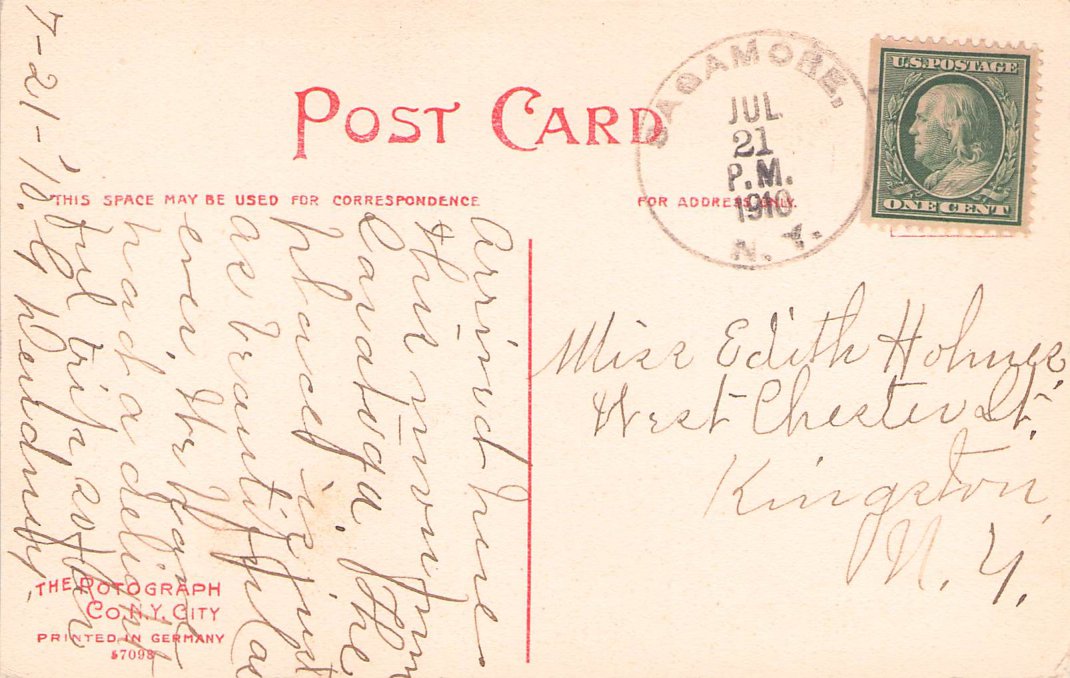 POST CARD
THIS SPACE MAY BE USED FOR CORRESPONDENCE
FOR ADDRESS ONLY.
SAGAMORE,
JUL
21
P.M.
1910
N. Y.
U.S. POSTAGE
ONE CENT
Miss Edith Holmes
West Chester St.
Kingston,
N. Y.
Arrived here
this morn from
Saratoga. The
place is just
as beautiful as
ever. We have
had a delight
ful trip so far
7-21-'10.
THE ROTOGRAPH
CO. N.Y. CITY
PRINTED IN GERMANY
57098